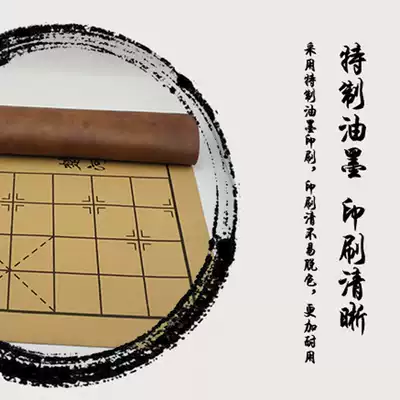 特制油墨 印刷清晰
采用特制油墨印刷，印刷清不易脱色，更加耐用
楚河